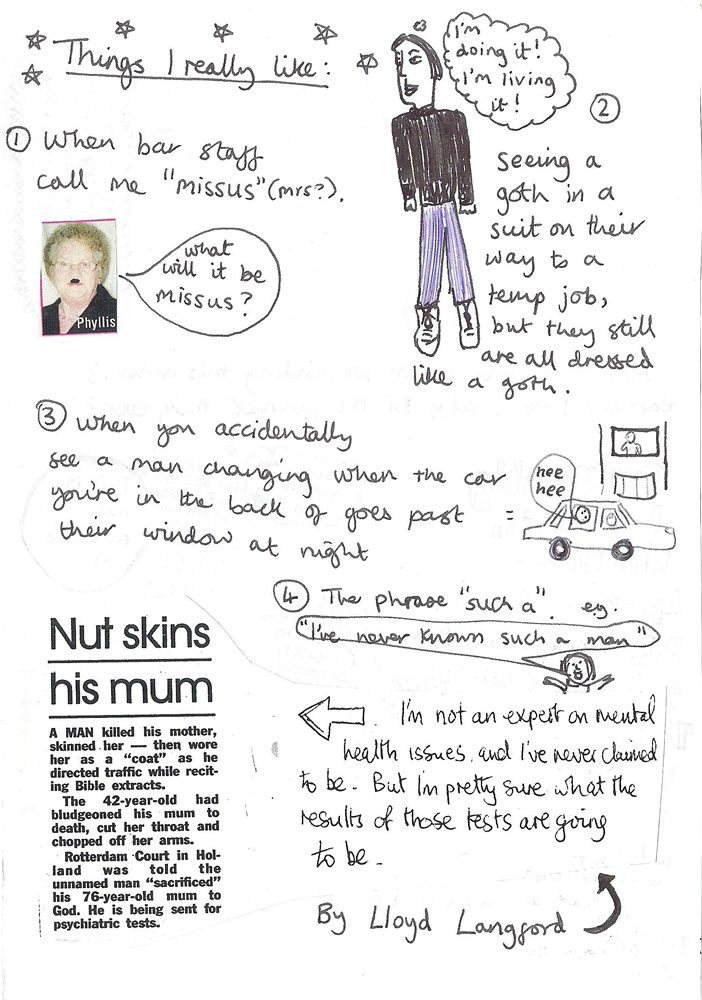 Things I really like:
① When bar staff
call me "missus" (mrs?).
Phyllis
what
will it be
missus?
I'm
doing it!
I'm living
it!
②
seeing a
goth in a
suit on their
way to a
temp job,
but they still
are all dressed
like a goth.
③ When you accidentally
see a man changing when the car
you're in the back of goes past
their window at night
=
hee
hee
④ The phrase "such a". eg.
"I've never known such a man"
Nut skins
his mum
A MAN killed his mother,
skinned her — then wore
her as a "coat" as he
directed traffic while recit-
ing Bible extracts.
The 42-year-old had
bludgeoned his mum to
death, cut her throat and
chopped off her arms.
Rotterdam Court in Hol-
land was told the
unnamed man "sacrificed"
his 76-year-old mum to
God. He is being sent for
psychiatric tests.
I'm not an expert on mental
health issues, and I've never claimed
to be. But I'm pretty sure what the
results of those tests are going
to be.
By Lloyd Langford